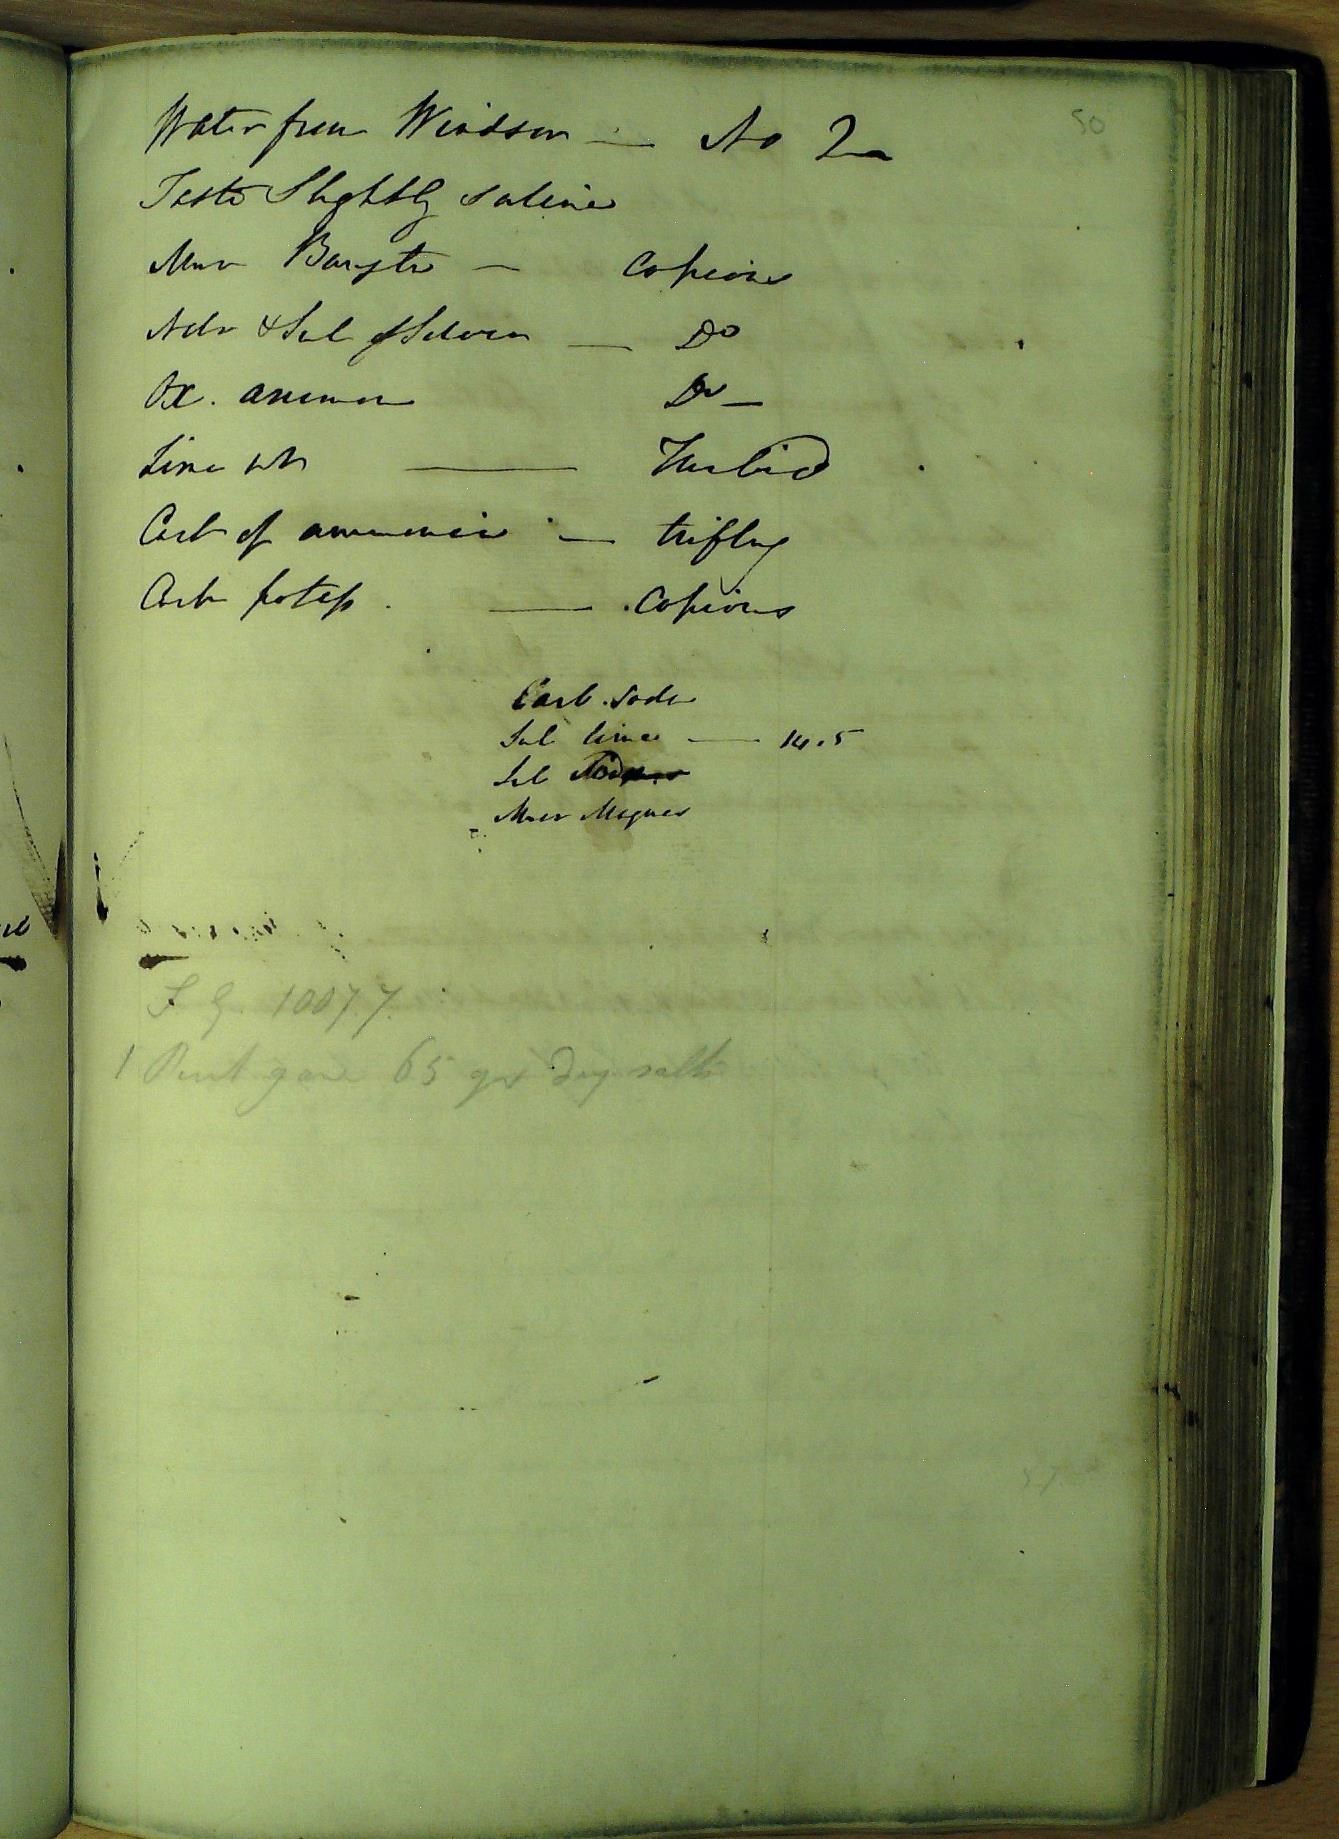 50
Water from Windsor — No 2
Taste Slightly saline
Mur Baryta — Copious
Nitr & Sul of Silver — Do
Ox. ammon Do —
Lime wtr — Turbid
Carb of ammonia — trifling
Carb potass. — Copious
Carb. Soda
Sul lime — 14.5
Sul
Mur Magnes
S. G. 1007.7.
1 Pint gave 65 grs dry salts